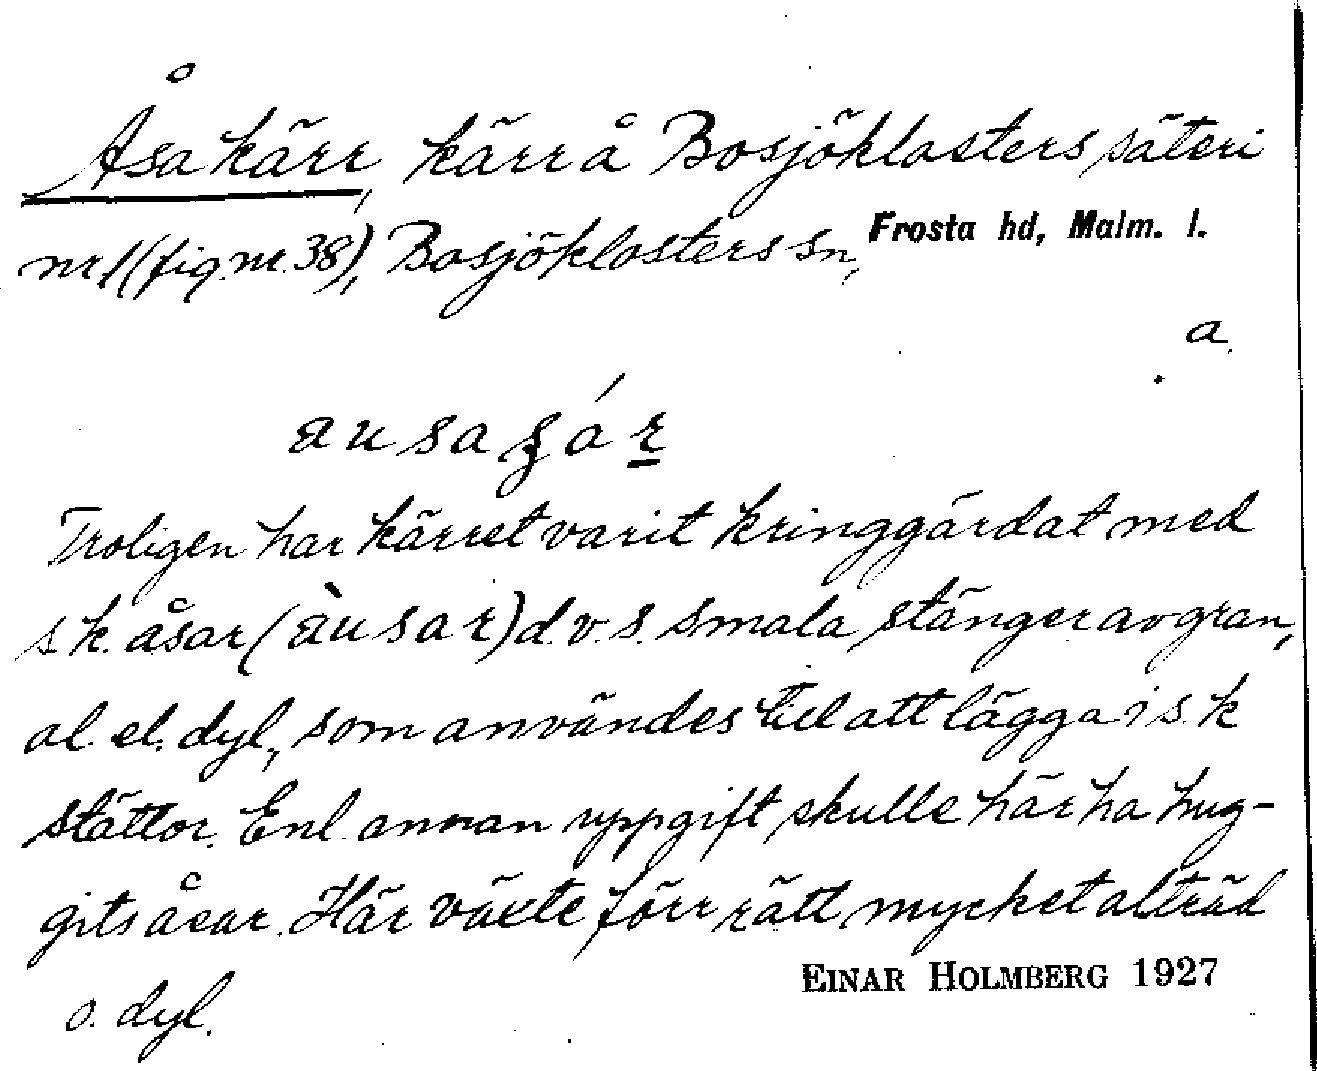 Åsakärr, kärr å Bosjöklosters säteri
nr 1 (fig. nr. 38), Bosjöklosters sn, Frosta hd, Malm. l.
a.
Troligen har kärret varit kringgärdat med
s. k. åsar (àusar) d.v.s. smala stänger av gran,
al. el. dyl., som användes till att lägga i s. k
stättor. Enl. annan uppgift skulle här ha hug-
gits åsar. Här växte förr rätt mycket alträd
o. dyl.
EINAR HOLMBERG 1927